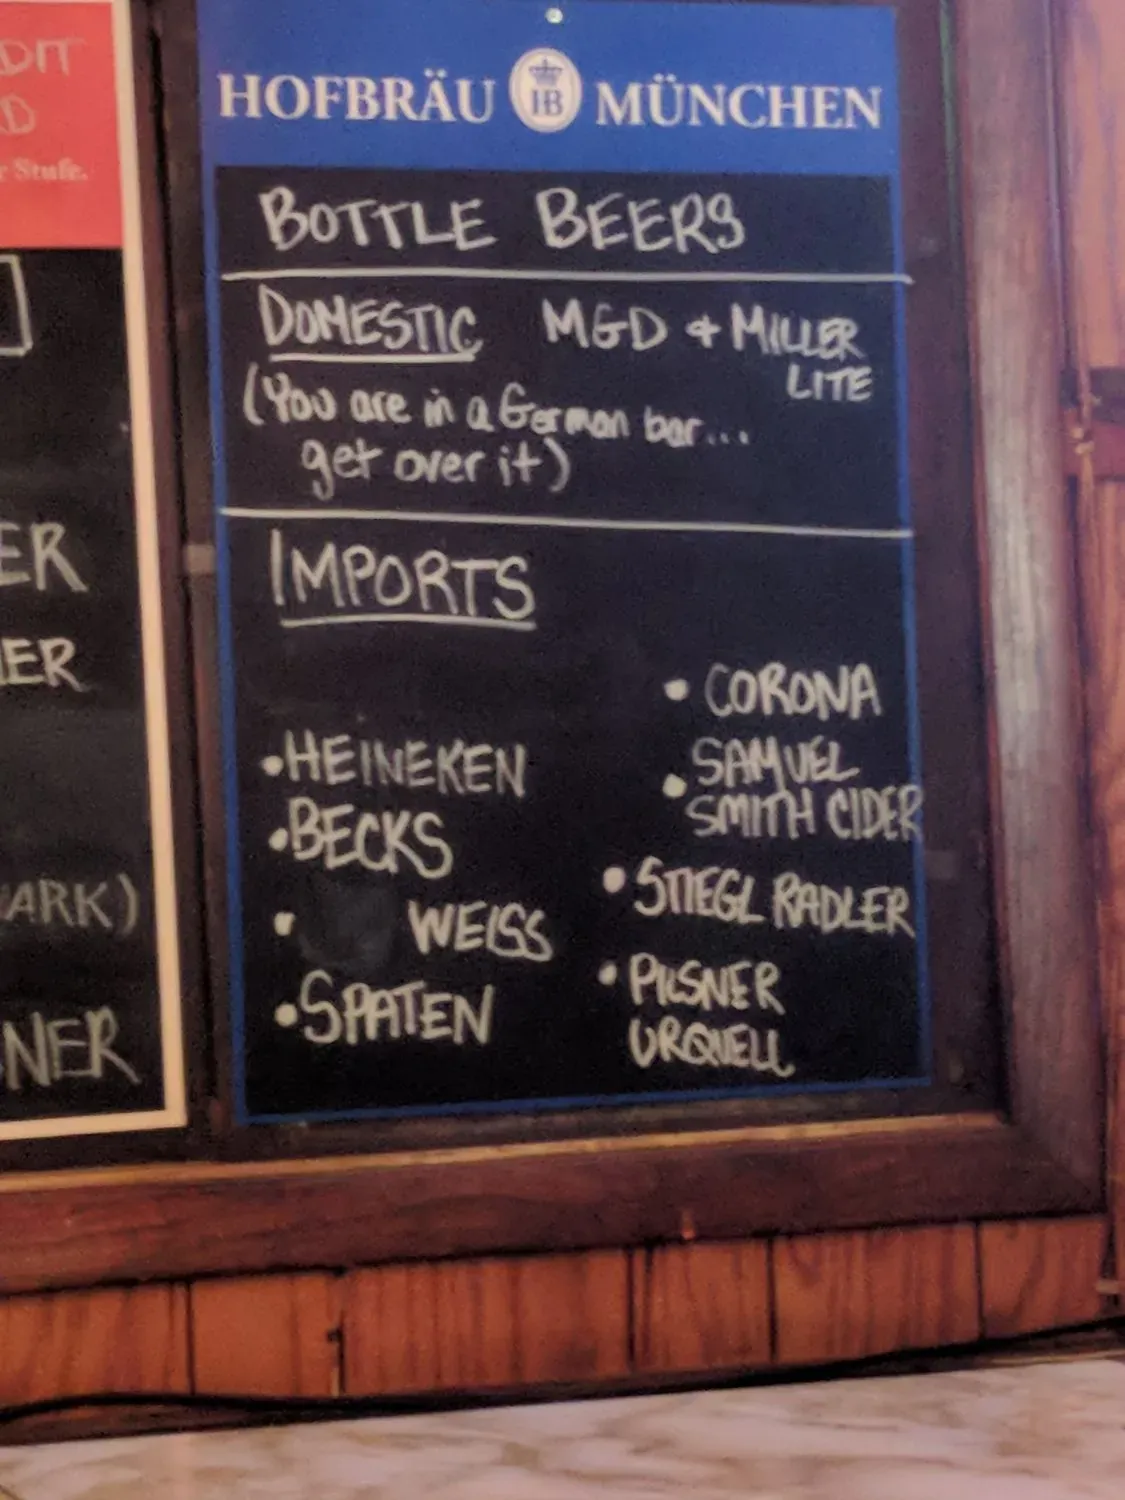 DIT
D
r Stufe.
ER
ER
ARK)
NER
HOFBRÄU HB MÜNCHEN
BOTTLE BEERS
DOMESTIC MGD + MILLER
LITE
(You are in a German bar...
get over it)
IMPORTS
• HEINEKEN
• BECKS
• WEISS
• SPATEN
• CORONA
• SAMUEL
SMITH CIDER
• STIEGL RADLER
• PILSNER
URQUELL